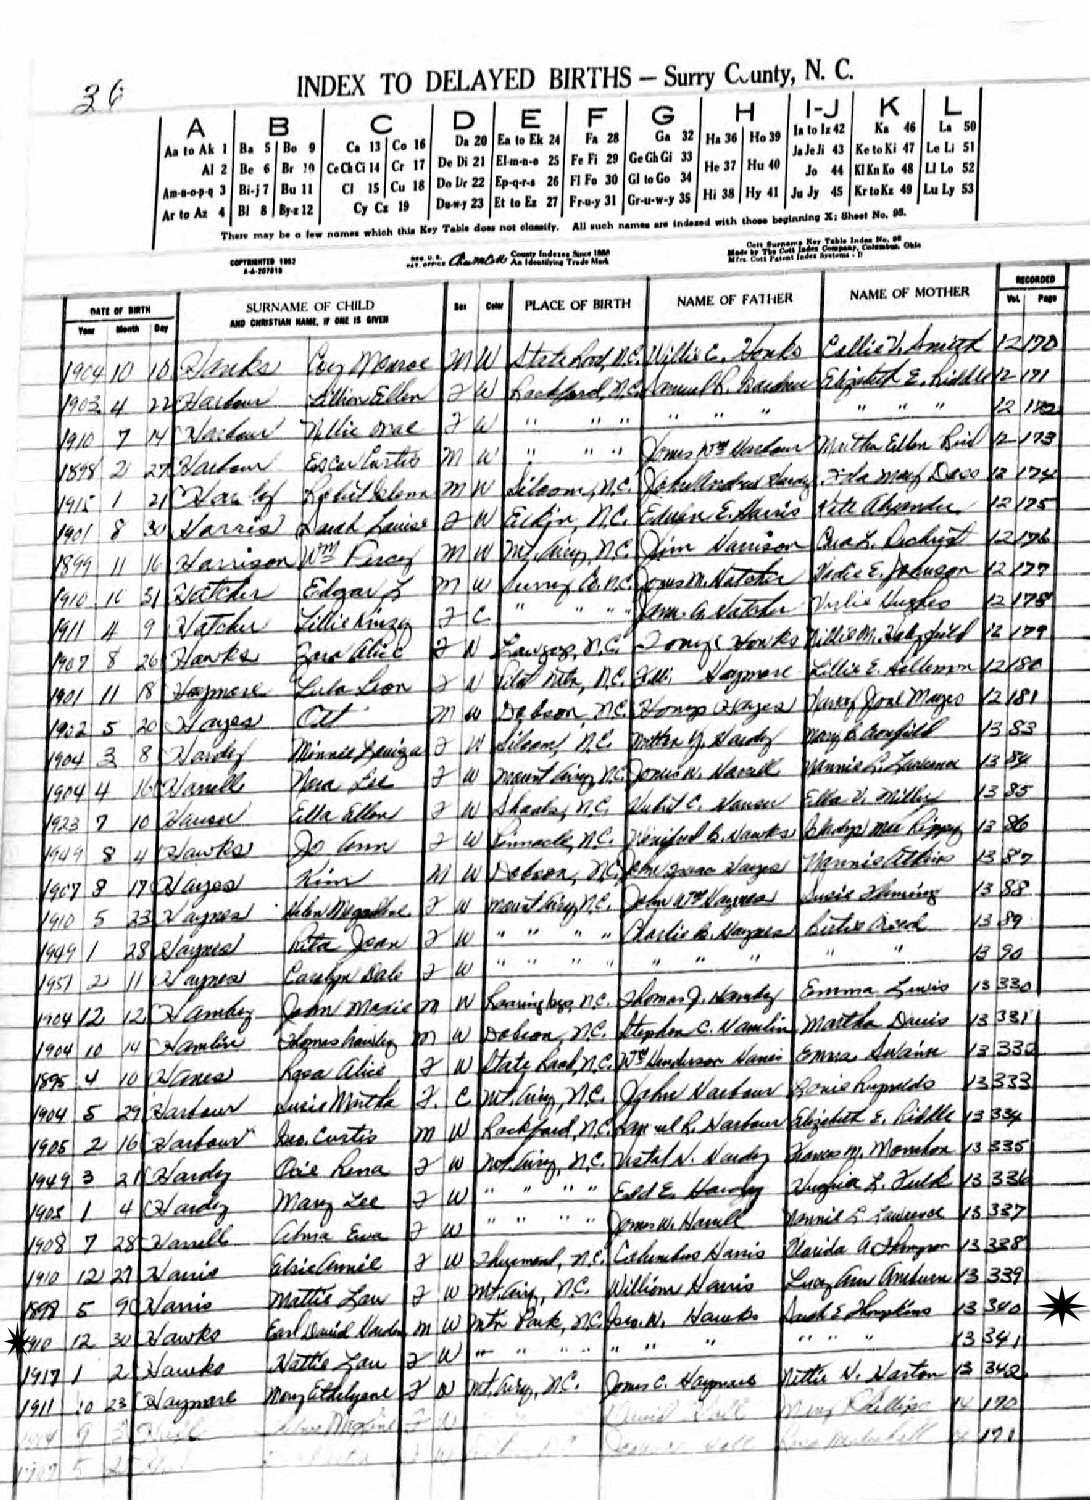 36
INDEX TO DELAYED BIRTHS — Surry County, N. C.
A B C D E F G H I-J K L
Aa to Ak 1 Ba 5 Bo 9 Ca 13 Co 16 Da 20 Ea to Ek 24 Fa 28 Ga 32 Ha 36 Ho 39 Ia to Iz 42 Ka 46 La 50
Al 2 Be 6 Br 10 Ce Ch Ci 14 Cr 17 De Di 21 El-m-n-o 25 Fe Fi 29 Ge Gh Gi 33 He 37 Hu 40 Ja Je Ji 43 Ke to Ki 47 Le Li 51
Am-n-o-p-q 3 Bi-j 7 Bu 11 Cl 15 Cu 18 Do Dr 22 Ep-q-r-s 26 Fl Fo 30 Gl to Go 34 Hi 38 Hy 41 Jo 44 Kl Kn Ko 48 Ll Lo 52
Ar to Az 4 Bl 8 By-z 12 Cy Cz 19 Du-w-y 23 Et to Ez 27 Fr-u-y 31 Gr-u-w-y 35 Ju Jy 45 Kr to Kz 49 Lu Ly 53
There may be a few names which this Key Table does not classify. All such names are indexed with those beginning X; Sheet No. 98.
COPYRIGHTED 1952
County Indexes Since 1888
An Identifying Trade Mark
Cott Surname Key Table Index No. 98
Made by The Cott Index Company, Columbus, Ohio
DATE OF BIRTH SURNAME OF CHILD AND CHRISTIAN NAME, IF ONE IS GIVEN Sex Color PLACE OF BIRTH NAME OF FATHER NAME OF MOTHER RECORDED
Year Month Day Vol. Page
1904 10 10 Hanks Coy Monroe M W State Road, N.C. Willie C. Hanks Callie V. Smith 12 170
1903 4 22 Harbour Lillian Ellen F W Rockford, N.C. Samuel R. Harbour Elizabeth E. Riddle 12 171
1910 7 14 Harbour Nellie Mae F W " " " " " " " " " 12 172
1898 2 27 Harbour Escar Curtis M W " " " James Wm Harbour Martha Ellen 12 173
1915 1 21 M W Siloam, N.C. John Andrew May Doss 12 174
1901 8 30 Harris Sarah Louise F W Elkin, N.C. Edwin E. Harris Kate Alexander 12 175
1899 11 16 Harrison Wm Percy M W Mt. Airy, N.C. Jim Harrison L. 12 176
1910 31 Hatcher Edgar L M W Surry Co. N.C. James M. Hatcher Sadie E. Johnson 12 177
1911 4 9 Hatcher Lillie F C " " " " A. Hatcher Hughes 12 178
1907 8 26 Hawks Zora Alice F W N.C. Hawks Millie M. 12 179
1901 11 18 Haymore Lula Leon F W Pilot Mtn, N.C. Haymore Lillie E. 12 180
1902 5 20 Hayes Ott M W Dobson, N.C. Hayes Nancy Jane 12 181
1904 3 8 Hardy Minnie F W Siloam, N.C. Y. Hardy Mary 13 83
1904 4 16 Harrell Nora Lee F W Mount Airy, N.C. James W. Harrell Nannie L. Lawrence 13 84
1923 7 10 Hauser Ella Ellen F W Shoals, N.C. Hubert C. Hauser Ella V. Miller 13 85
1949 8 4 Hawks Jo Ann F W Pinnacle, N.C. Winifred B. Hawks Gladys Mae 13 86
1907 8 17 Hayes Kim M W Dobson, N.C. John Hayes Nannie Atkins 13 87
1910 5 23 Haynes Helen Magdalene F W Mount Airy, N.C. John Wm Haynes Susie Fleming 13 88
1949 1 28 Haynes Rita Jean F W " " " " Charlie B. Haynes Bertie Creed 13 89
1951 2 11 Haynes Carolyn Dale F W " " " " " " " " " 13 90
1904 12 12 John Maxie M W Roaring Gap, N.C. Thomas J. Emma Lewis 13 330
1904 10 14 Hamlin Thomas M W Dobson, N.C. Stephen C. Hamlin Martha Davis 13 331
1895 4 10 Hanes Rosa Alice F W State Road, N.C. Wm Henderson Hanes Emma Swaim 13 332
1904 5 29 Harbour Susie Martha F. C Mt. Airy, N.C. John Harbour Reynolds 13 333
1905 2 16 Harbour Geo. Curtis M W Rockford, N.C. Samuel R. Harbour Elizabeth E. Riddle 13 334
1949 3 21 Hardy Ovie Rena F W Mt. Airy, N.C. Vestal N. Hardy Frances M. 13 335
1905 1 4 Hardy Mary Lee F W " " " " E. Hardy L. 13 336
1908 7 28 Harrell Alma Eva F W " " " " James W. Harrell Nannie L. Lawrence 13 337
1910 12 27 Harris Annie F W Thurmond, N.C. Columbus Harris A. Thompson 13 338
1898 5 9 Harris Mattie Lou F W Mt. Airy, N.C. William Harris Lucy Ann 13 339
1910 12 30 Hawks Earl David M W Mtn Park, N.C. Geo. W. Hawks Sarah E Thompkins 13 340
1917 1 2 Hawks Hattie Lou F W " " " " " " " " " " 13 341
1911 10 23 Haymore Mary F W Mt. Airy, N.C. James C. Haymore Nettie V. Harton 13 342
9 F W David Hall Mary Phillips 14 170
5 171